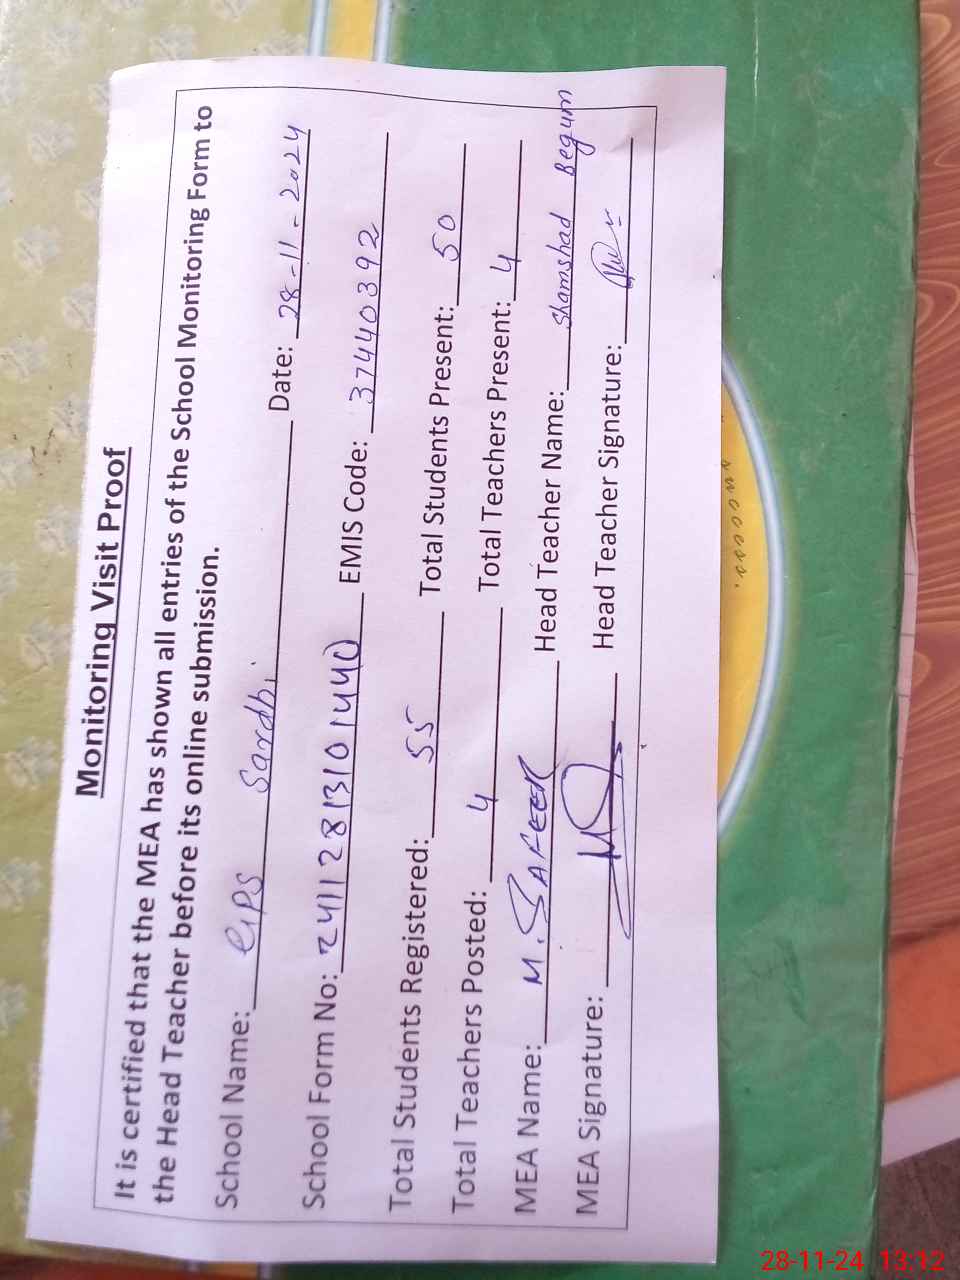 Monitoring Visit Proof
It is certified that the MEA has shown all entries of the School Monitoring Form to
the Head Teacher before its online submission.
School Name: GPS Sardhi Date: 28-11-2024
School Form No: 24112813101440 EMIS Code: 37440392
Total Students Registered: 55 Total Students Present: 50
Total Teachers Posted: 4 Total Teachers Present: 4
MEA Name: M. SAFEER Head Teacher Name: Shamshad Begum
MEA Signature: Head Teacher Signature:
28-11-24 13:12